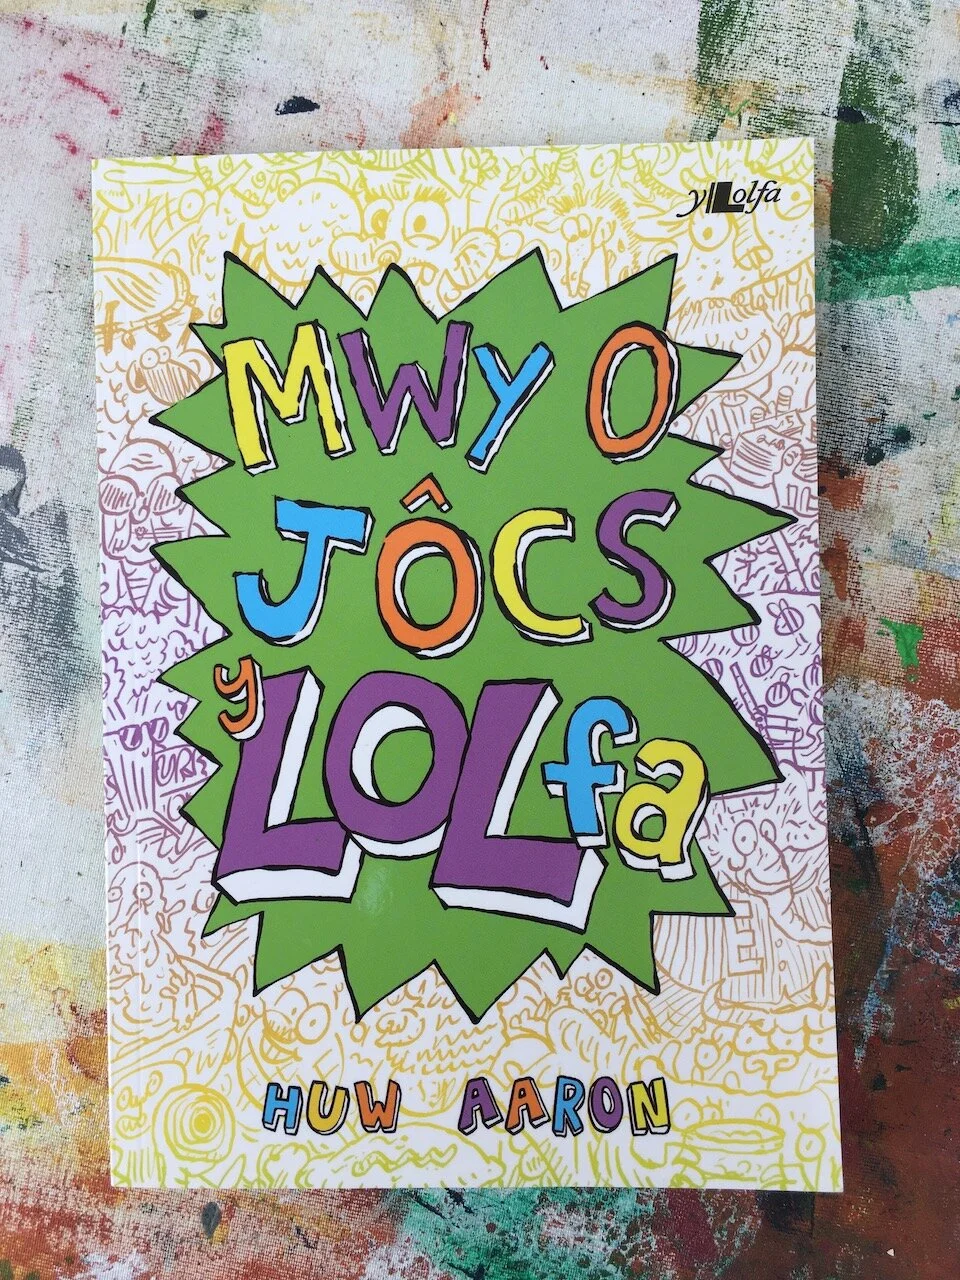 y Lolfa
MWY O
JÔCS
y LOLfa
HUW AARON